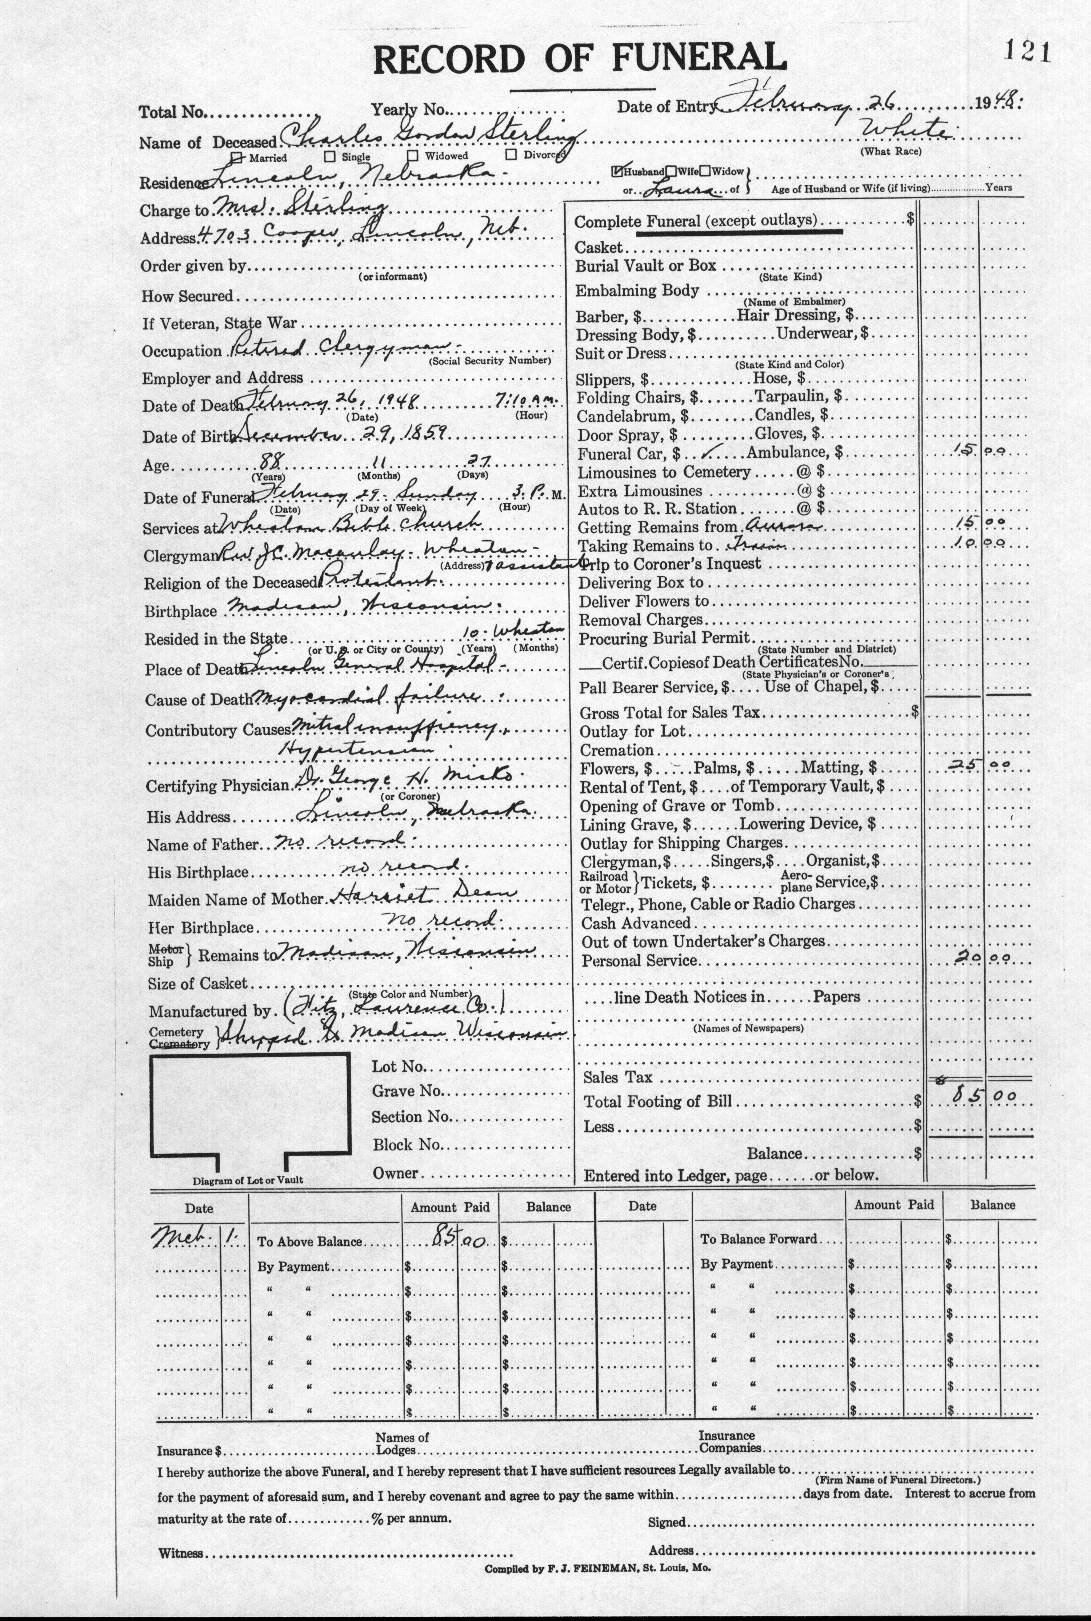 121
RECORD OF FUNERAL
Total No. Yearly No. Date of Entry February 26 1948:
Name of Deceased Charles Gordon Sterling White
(What Race)
Married Single Widowed Divorced
Residence Lincoln, Nebraska. Husband Wife Widow
or Laura of Age of Husband or Wife (if living) Years
Charge to Mrs. Sterling
Address 4703 Cooper, Lincoln, Neb.
Order given by
(or informant)
How Secured
If Veteran, State War
Occupation Retired Clergyman -
(Social Security Number)
Employer and Address
Date of Death February 26, 1948 7:10 A.M.
(Date) (Hour)
Date of Birth December 29, 1859
Age 88 11 27
(Years) (Months) (Days)
Date of Funeral February 29 - Sunday 3. P. M.
(Date) (Day of Week) (Hour)
Services at Wheaton Bible Church
Clergyman Rev J.C. Macaulay - Wheaton -
(Address) assistant
Religion of the Deceased Protestant.
Birthplace Madison, Wisconsin.
Resided in the State 10 - Wheaton
(or U.S. or City or County) (Years) (Months)
Place of Death Lincoln General Hospital -
Cause of Death Myocardial failure
Contributory Causes Mitral insufficiency,
Hypertension
Certifying Physician Dr. George H. Misko.
(or Coroner)
His Address Lincoln, Nebraska.
Name of Father no record.
His Birthplace no record.
Maiden Name of Mother Harriet Dean
Her Birthplace no record.
Motor
Ship } Remains to Madison, Wisconsin
Size of Casket
(State Color and Number)
Manufactured by (Fitz, Lawrence Co.)
Cemetery
Crematory } Shipped to Madison Wisconsin
Lot No.
Grave No.
Section No.
Block No.
Owner
Diagram of Lot or Vault
Complete Funeral (except outlays) $
Casket
Burial Vault or Box
(State Kind)
Embalming Body
(Name of Embalmer)
Barber, $ Hair Dressing, $
Dressing Body, $ Underwear, $
Suit or Dress
(State Kind and Color)
Slippers, $ Hose, $
Folding Chairs, $ Tarpaulin, $
Candelabrum, $ Candles, $
Door Spray, $ Gloves, $
Funeral Car, $ ✓ Ambulance, $ 15 00
Limousines to Cemetery @ $
Extra Limousines @ $
Autos to R. R. Station @ $
Getting Remains from Aurora 15 00
Taking Remains to Train 10 00
Trip to Coroner's Inquest
Delivering Box to
Deliver Flowers to
Removal Charges
Procuring Burial Permit
(State Number and District)
Certif. Copies of Death Certificates No.
(State Physician's or Coroner's)
Pall Bearer Service, $ Use of Chapel, $
Gross Total for Sales Tax $
Outlay for Lot
Cremation
Flowers, $ Palms, $ Matting, $ 25 00
Rental of Tent, $ of Temporary Vault, $
Opening of Grave or Tomb
Lining Grave, $ Lowering Device, $
Outlay for Shipping Charges
Clergyman, $ Singers, $ Organist, $
Railroad
or Motor } Tickets, $ Aero-
plane Service, $
Telegr., Phone, Cable or Radio Charges
Cash Advanced
Out of town Undertaker's Charges
Personal Service 20 00
line Death Notices in Papers
(Names of Newspapers)
Sales Tax
Total Footing of Bill $ 85 00
Less $
Balance $
Entered into Ledger, page or below.
Date Amount Paid Balance Date Amount Paid Balance
Mch. 1. To Above Balance 85 00 $ To Balance Forward $
By Payment $ $ By Payment $ $
" " $ $ " " $ $
" " $ $ " " $ $
" " $ $ " " $ $
" " $ $ " " $ $
" " $ $ " " $ $
" " $ $ " " $ $
Insurance $ Names of
Lodges Insurance
Companies
I hereby authorize the above Funeral, and I hereby represent that I have sufficient resources Legally available to
(Firm Name of Funeral Directors.)
for the payment of aforesaid sum, and I hereby covenant and agree to pay the same within days from date. Interest to accrue from
maturity at the rate of % per annum. Signed
Witness Address
Compiled by F. J. FEINEMAN, St. Louis, Mo.